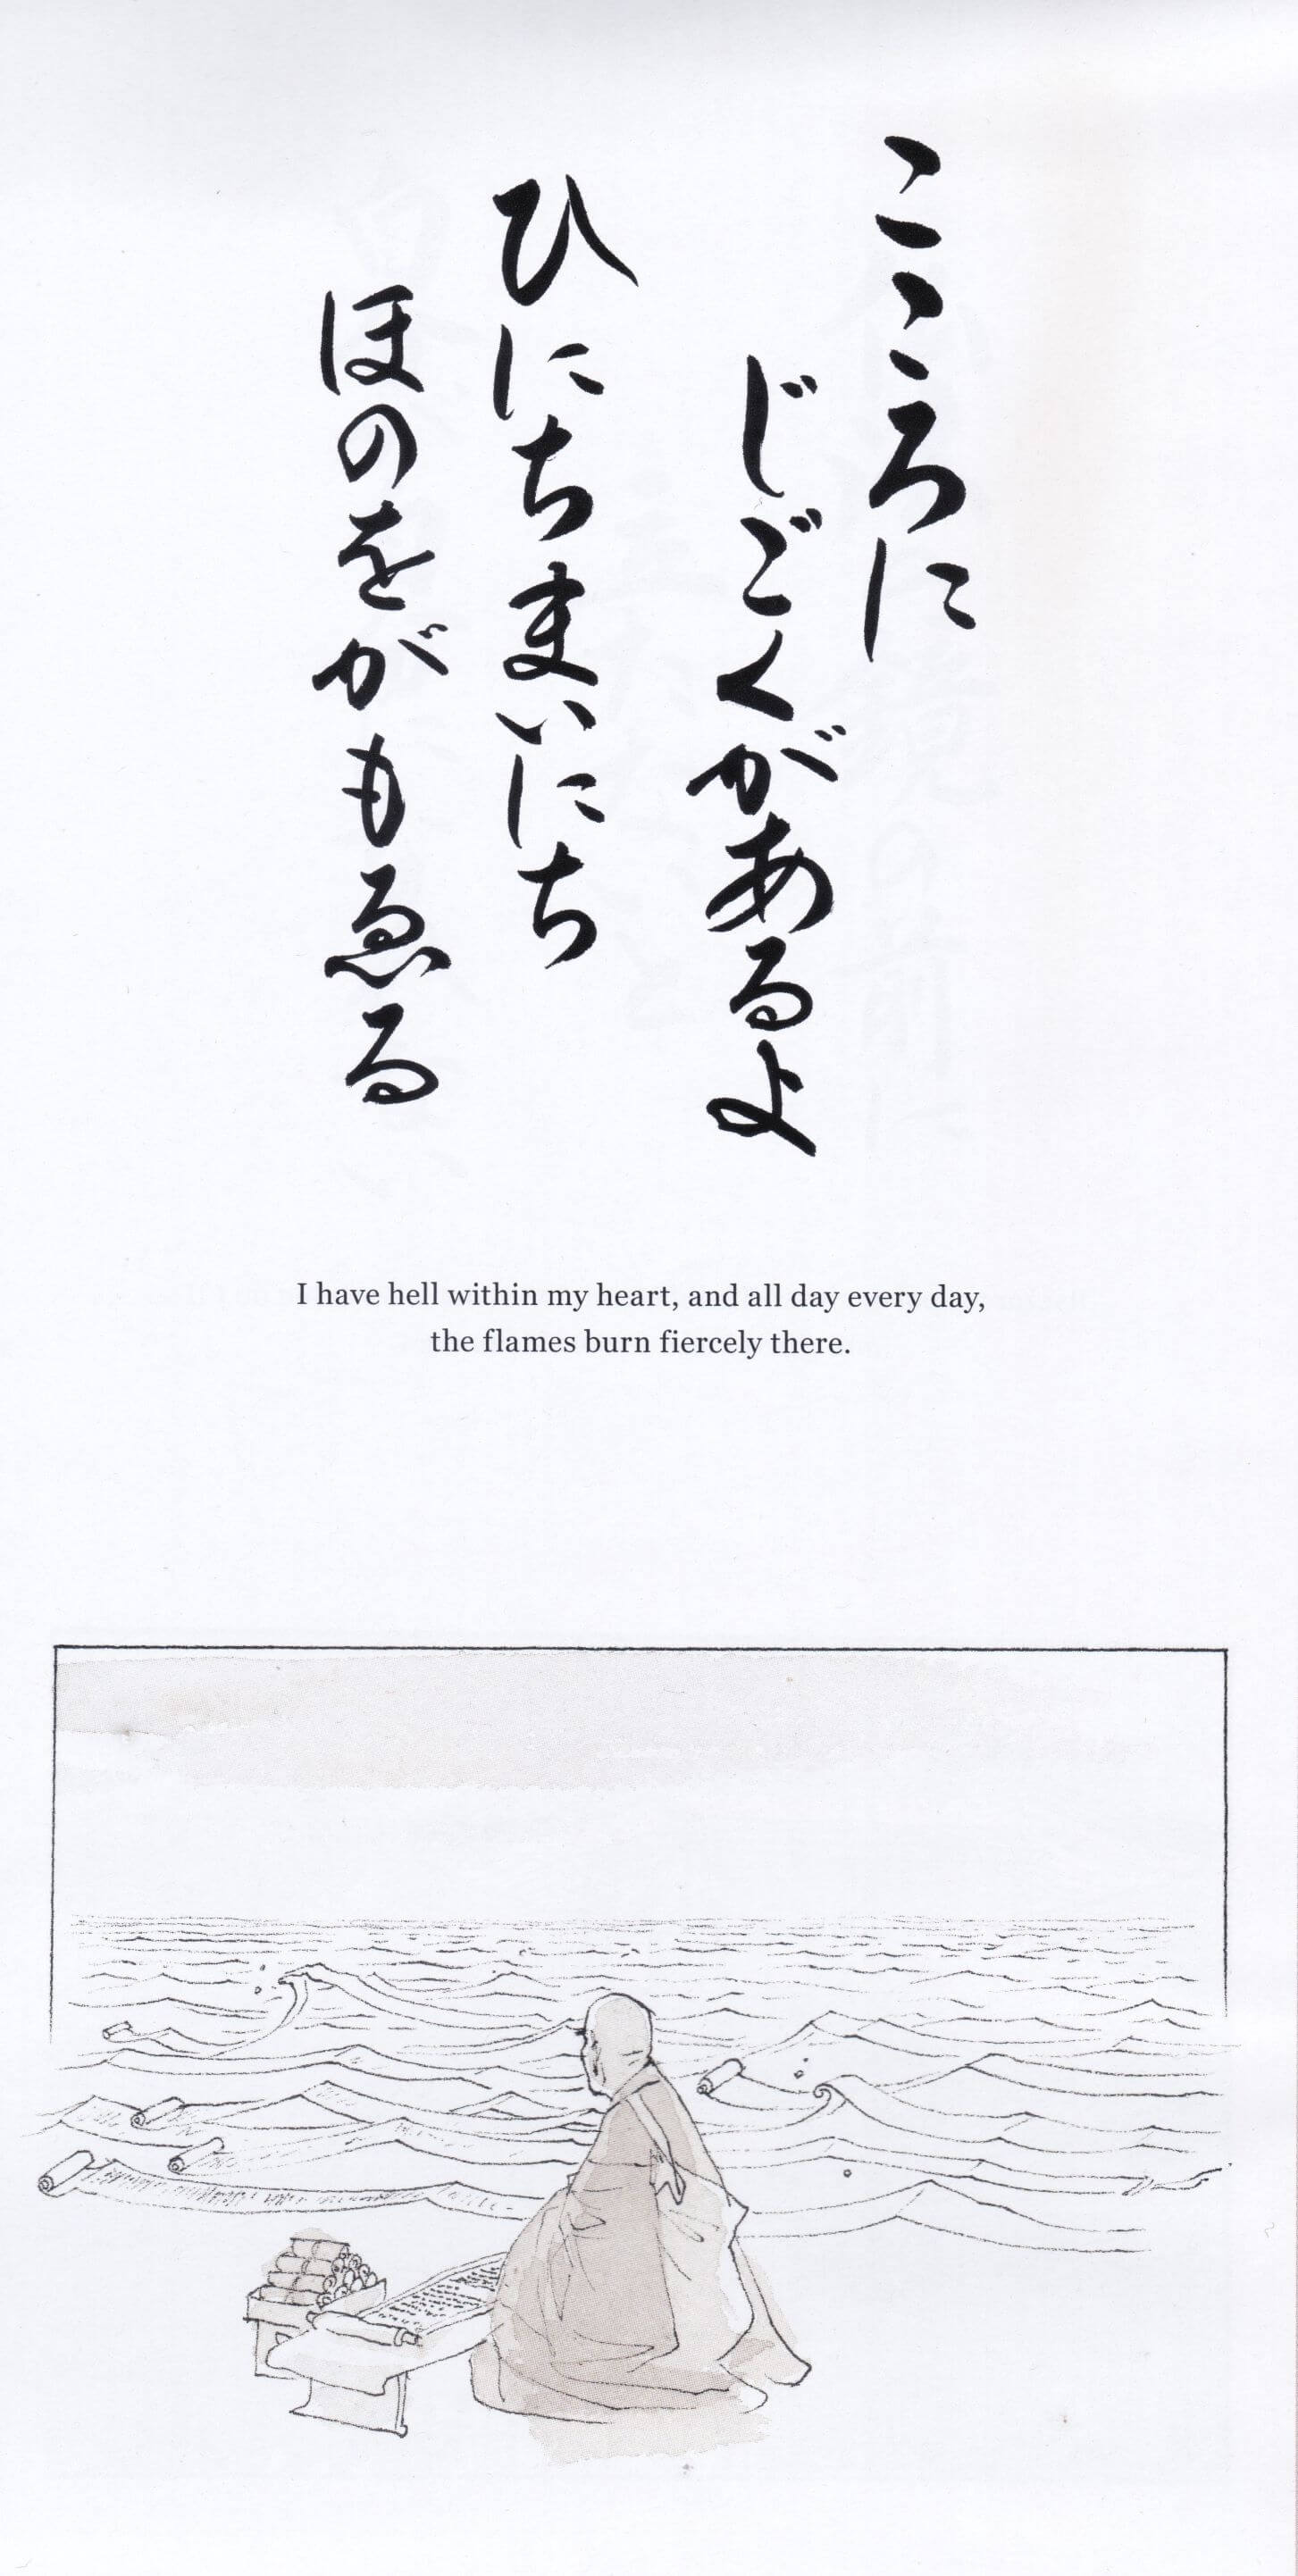 こころに
じごくがあるよ
ひにちまいにち
ほのをがもゑる
I have hell within my heart, and all day every day,
the flames burn fiercely there.